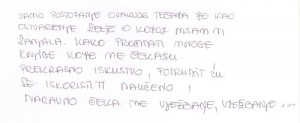 SAMO POSTOJANJE OVAKVOG TEČAJA JE KAO
OSTVARENJE ŽELJE O KOJOJ NISAM NI
SANJALA. KAKO PRODATI MNOGE
KNJIGE KOJE ME ČEKAJU.
PREKRASNO ISKUSTVO, POTRUDIT ĆU
SE ISKORISTITI NAUČENO!
NARAVNO ČEKA ME VJEŽBANJE, VJEŽBANJE ...